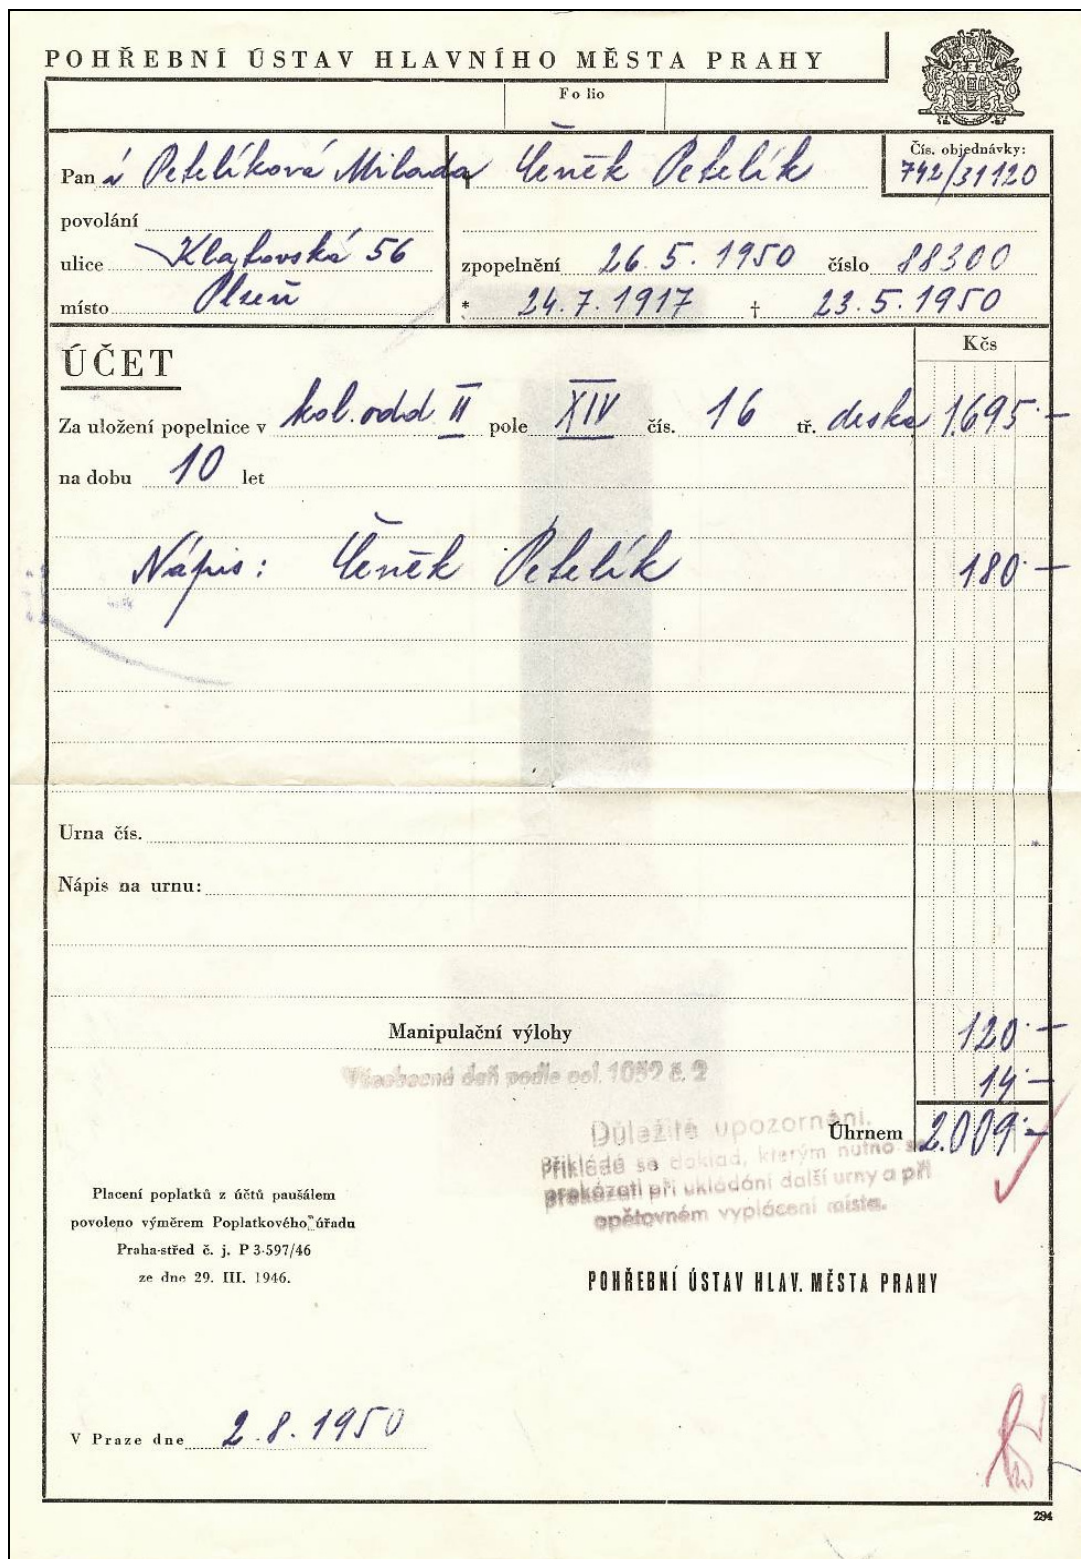 POHŘEBNÍ ÚSTAV HLAVNÍHO MĚSTA PRAHY
Folio
Čís. objednávky:
742/31120
Pan í Petelíková Milada † Čeněk Petelík
povolání
ulice Klatovská 56
zpopelnění 26.5.1950 číslo 88300
místo Plzeň
* 24.7.1917 † 23.5.1950
ÚČET
Kčs
Za uložení popelnice v kol. odd. II pole XIV čís. 16 tř. deska 1.695.-
na dobu 10 let
Nápis: Čeněk Petelík 180.-
Urna čís.
Nápis na urnu:
Manipulační výlohy 120.-
Všeobecná daň podle pol. 1052 č. 2 14.-
Úhrnem 2.009.-
Důležité upozornění.
Přikládá se doklad, kterým nutno se
prokázati při ukládání další urny a při
opětovném vyplácení místa.
Placení poplatků z účtů paušálem
povoleno výměrem Poplatkového úřadu
Praha-střed č. j. P 3-597/46
ze dne 29. III. 1946.
POHŘEBNÍ ÚSTAV HLAV. MĚSTA PRAHY
V Praze dne 2.8.1950
294